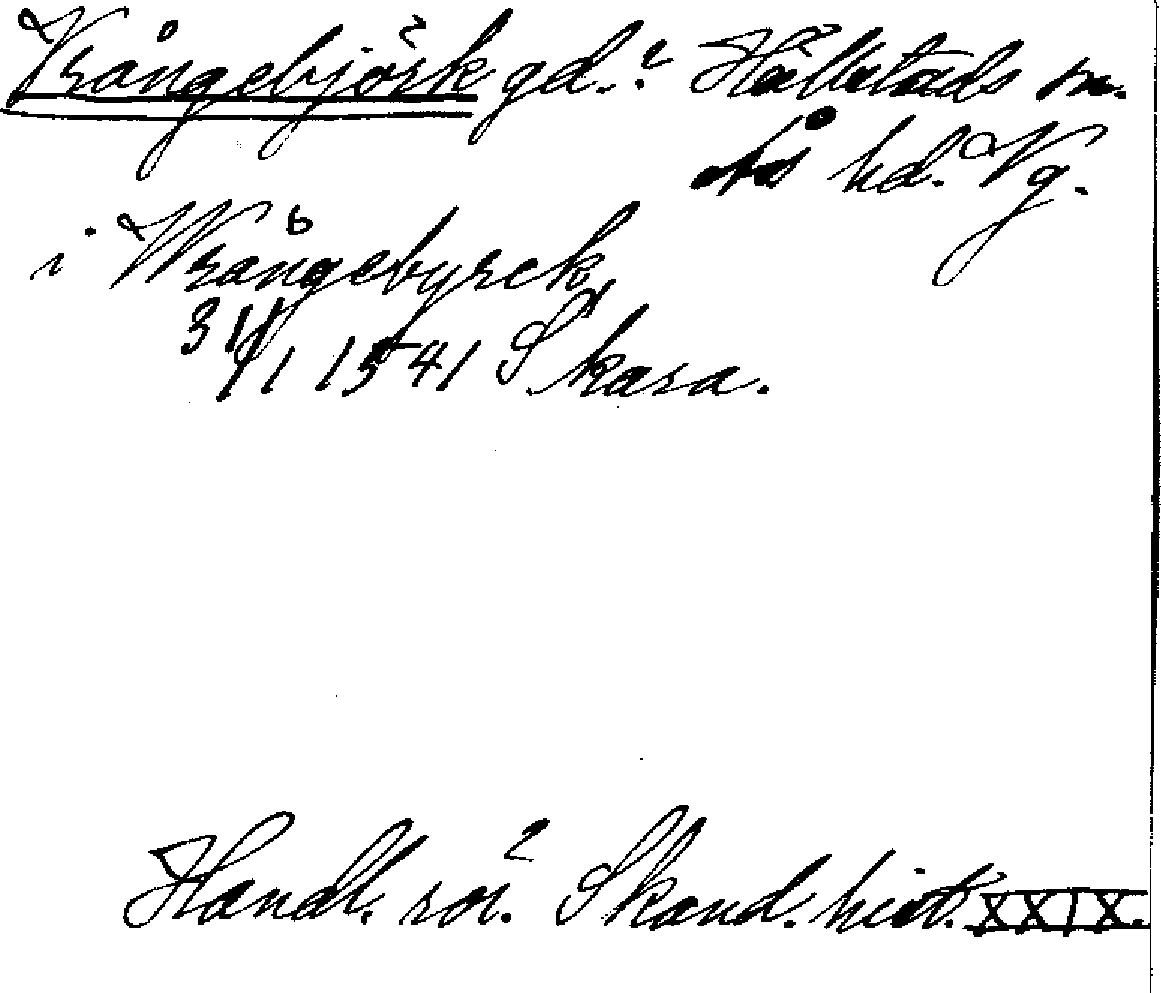 Vrångebjörk gd.? Hällstads sn.
Ås hd. Vg.
i Wrångebyrck
31/1 1541 Skara.
Handl. rör. Skand. hist. XXIX.